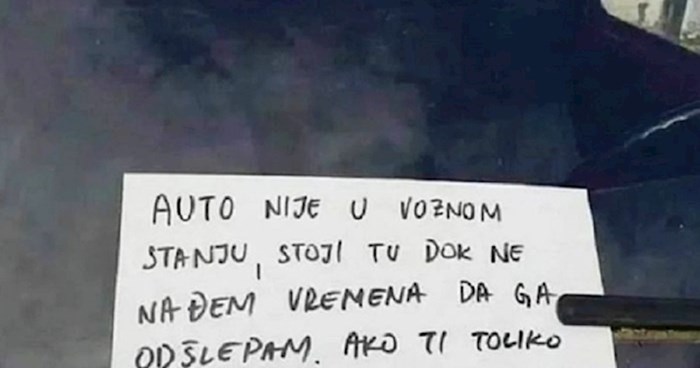 AUTO NIJE U VOZNOM
STANJU, STOJI TU DOK NE
NAĐEM VREMENA DA GA
ODŠLEPAM. AKO TI TOLIKO